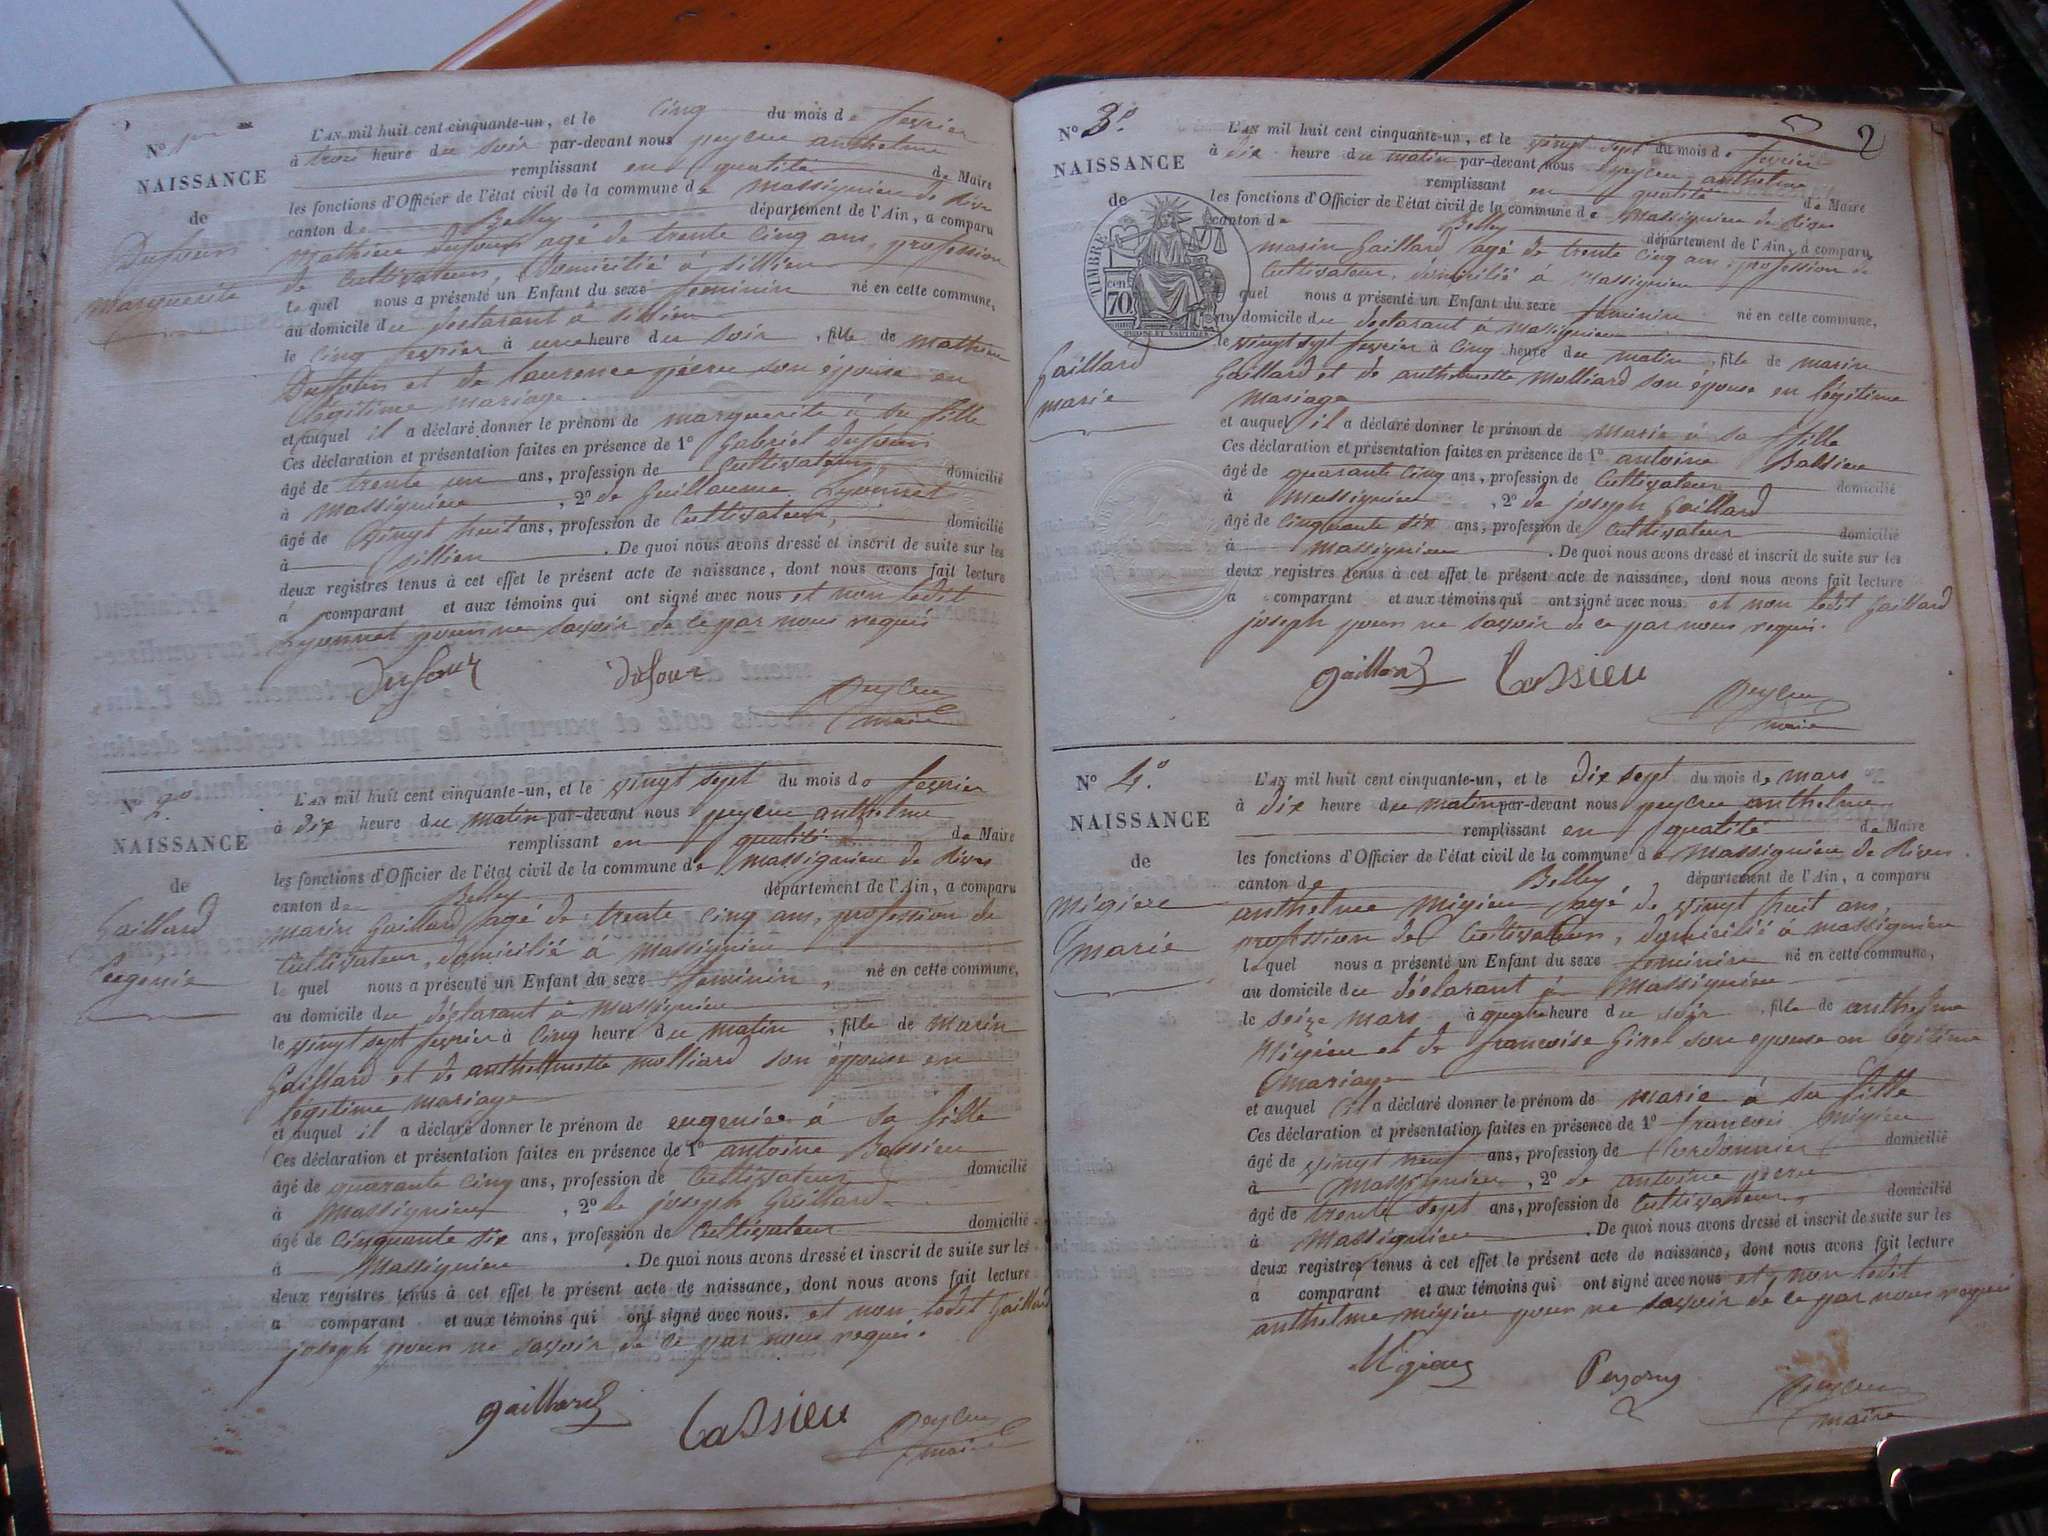 No 1er
NAISSANCE
de
Dufour
Marguerite
L'AN mil huit cent cinquante-un, et le cinq du mois de fevrier
à trois heure du soir par-devant nous peycru anthelme
remplissant en qualité de Maire
les fonctions d'Officier de l'état civil de la commune de massignieu de Rives
canton de Belley département de l'Ain, a comparu
Mathieu Dufour agé de trente cinq ans, profession
de Cultivateur, domicilié à sillieu
le quel nous a présenté un Enfant du sexe feminin né en cette commune,
au domicile du declarant à sillieu
le cinq fevrier à une heure du soir, fille de mathieu
Dufour et de laurence son épouse en
légitime mariage
et auquel il a déclaré donner le prénom de marguerite à sa fille
Ces déclaration et présentation faites en présence de 1º Gabriel dufour
âgé de trente un ans, profession de Cultivateur, domicilié
à Massignieu, 2º de Guillaume Lyonnet
âgé de vingt huit ans, profession de Cultivateur, domicilié
à sillieu. De quoi nous avons dressé et inscrit de suite sur les
deux registres tenus à cet effet le présent acte de naissance, dont nous avons fait lecture
à comparant et aux témoins qui ont signé avec nous et non ledit
Lyonnet pour ne savoir de ce par nous requis
Dufour dufour Peycru
maire
No 2º
NAISSANCE
de
Gaillard
Eugenie
L'AN mil huit cent cinquante-un, et le vingt sept du mois de fevrier
à dix heure du matin par-devant nous peycru anthelme
remplissant en qualité de Maire
les fonctions d'Officier de l'état civil de la commune de massignieu de Rives
canton de Belley département de l'Ain, a comparu
marin Gaillard agé de trente cinq ans, profession de
Cultivateur, domicilié à massignieu
le quel nous a présenté un Enfant du sexe feminin, né en cette commune,
au domicile du déclarant à massignieu
le vingt sept fevrier à cinq heure du matin, fille de Marin
Gaillard et de anthelmette molliard son épouse en
légitime mariage
et auquel il a déclaré donner le prénom de eugenie à sa fille
Ces déclaration et présentation faites en présence de 1º antoine Bassieu
âgé de quarante cinq ans, profession de Cultivateur domicilié
à Massignieu, 2º de joseph Gaillard
âgé de cinquante six ans, profession de Cultivateur domicilié
à Massignieu. De quoi nous avons dressé et inscrit de suite sur les
deux registres tenus à cet effet le présent acte de naissance, dont nous avons fait lecture
a comparant et aux témoins qui ont signé avec nous. et non ledit Gaillard
joseph pour ne savoir de ce par nous requis.
gaillard bassieu Peycru
maire
2
No 3º.
NAISSANCE
de
TIMBRE
70 cen
Gaillard
marie
L'AN mil huit cent cinquante-un, et le vingt sept du mois de fevrier
à dix heure du matin par-devant nous peycru anthelme
remplissant en qualité de Maire
les fonctions d'Officier de l'état civil de la commune de Massignieu de Rives
canton de Belley département de l'Ain, a comparu
marin Gaillard agé de trente cinq ans, profession de
Cultivateur, domicilié à Massignieu
quel nous a présenté un Enfant du sexe feminin né en cette commune,
au domicile du declarant à massignieu
le vingt sept fevrier à cinq heure du matin, fille de marin
Gaillard et de anthelmette Molliard son épouse en légitime
mariage
et auquel il a déclaré donner le prénom de marie à sa fille
Ces déclaration et présentation faites en présence de 1º antoine Bassieu
âgé de quarante cinq ans, profession de Cultivateur domicilié
à Massignieu, 2º de joseph Gaillard
âgé de cinquante six ans, profession de Cultivateur domicilié
à Massignieu. De quoi nous avons dressé et inscrit de suite sur les
deux registres tenus à cet effet le présent acte de naissance, dont nous avons fait lecture
a comparant et aux témoins qui ont signé avec nous et non ledit Gaillard
joseph pour ne savoir de ce par nous requis.
gaillard bassieu Peycru
maire
No 4º.
NAISSANCE
de
Migieu
marie
L'AN mil huit cent cinquante-un, et le dix sept du mois de mars
à dix heure du matin par-devant nous peycru anthelme
remplissant en qualité de Maire
les fonctions d'Officier de l'état civil de la commune de Massignieu de Rives
canton de Belley département de l'Ain, a comparu
anthelme Migieu agé de vingt huit ans,
profession de Cultivateur, domicilié à massignieu
le quel nous a présenté un Enfant du sexe feminin né en cette commune,
au domicile du déclarant à Massignieu
le seize mars à quatre heure du soir, fille de anthelme
Migieu et de francoise Ginet son epouse en légitime
mariage
et auquel il a déclaré donner le prénom de marie à sa fille
Ces déclaration et présentation faites en présence de 1º francois Migieu
âgé de vingt neuf ans, profession de Cordonnier domicilié
à Massignieu, 2º de antoine
âgé de trente sept ans, profession de Cultivateur, domicilié
à Massignieu. De quoi nous avons dressé et inscrit de suite sur les
deux registres tenus à cet effet le présent acte de naissance, dont nous avons fait lecture
a comparant et aux témoins qui ont signé avec nous et non ledit
anthelme migieu pour ne savoir de ce par nous requis
Migieu Peycru
maire